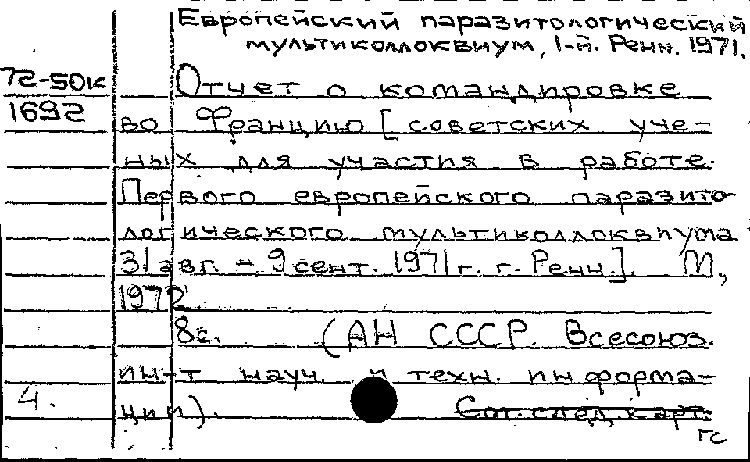 Европейский паразитологический
мультиколлоквиум, 1-й. Ренн. 1971.
72-50к
1692
Отчет о командировке
во Францию [советских уче-
ных для участия в работе
Первого европейского паразито-
логического мультиколлоквиума
31 авг. - 9 сент. 1971 г. г. Ренн]. М,
1972
8с. (АН СССР. Всесоюз.
ин-т науч. и техн. информа-
ции).
4.
См. след. карт.
гс